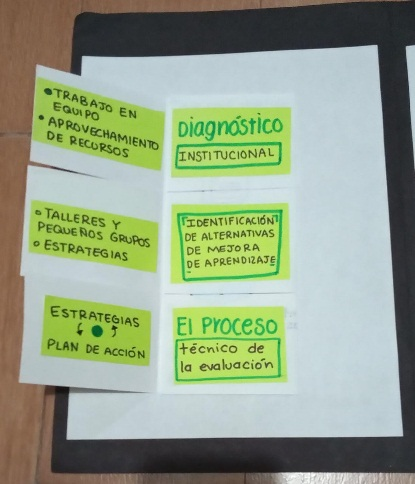 •TRABAJO EN
EQUIPO
• APROVECHAMIENTO
DE RECURSOS
Diagnóstico
INSTITUCIONAL
• TALLERES Y
PEQUEÑOS GRUPOS
• ESTRATEGIAS
IDENTIFICACIÓN
DE ALTERNATIVAS
DE MEJORA
DE APRENDIZAJE
ESTRATEGIAS
PLAN DE ACCIÓN
El Proceso
técnico de
la evaluación